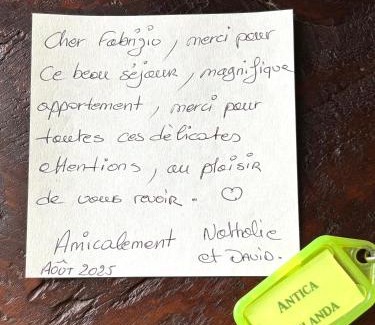 Cher Fabrizio, merci pour
ce beau séjour, magnifique
appartement, merci pour
toutes ces délicates
attentions, au plaisir
de vous revoir. ♡
Amicalement Nathalie
et David.
Août 2025
ANTICA
LANDA